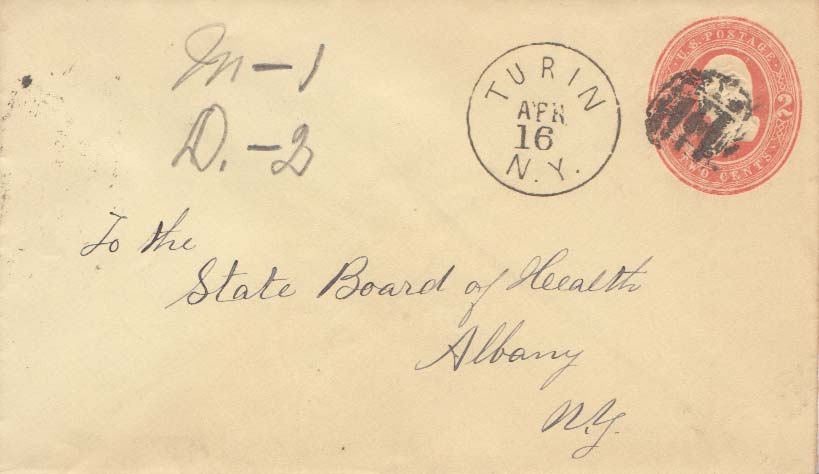 M-1
D.-2
TURIN
APR
16
N.Y.
U.S. POSTAGE
2
TWO CENTS
To the
State Board of Health
Albany
N.Y.